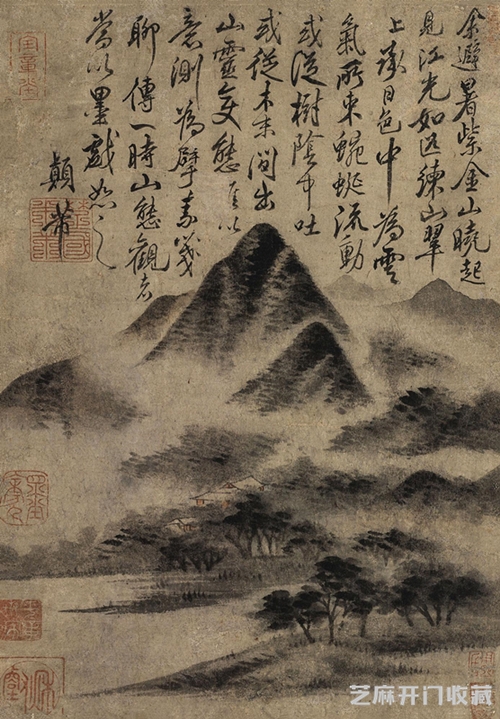 余避暑紫金山曉起
見江光如匹練山翠
上承日色中為雲
氣所束蜿蜒流動
或從樹陰中吐
或從木末間出
山靈変態匪以
意測為擘素箋
聊傳一時山態觀者
當以墨戲如之
顛芾
芝麻开门收藏